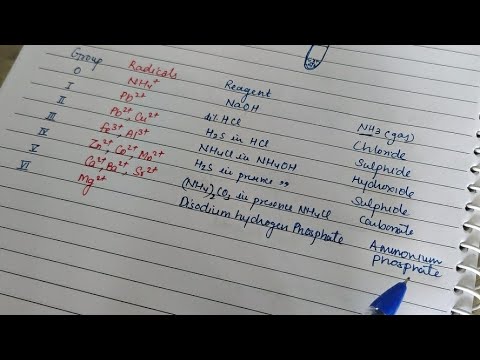 Group Radicals Reagent
0 NH4+ NaOH NH3 (gas)
I Pb2+ dil HCl Chloride
II Pb2+, Cu2+ H2S in HCl Sulphide
III Fe3+, Al3+ NH4Cl in NH4OH Hydroxide
IV Zn2+, Co2+, Mn2+ H2S in presence " Sulphide
V Ca2+, Ba2+, Sr2+ (NH4)2CO3 in presence NH4Cl Carbonate
VI Mg2+ Disodium hydrogen Phosphate Ammonium
phosphate